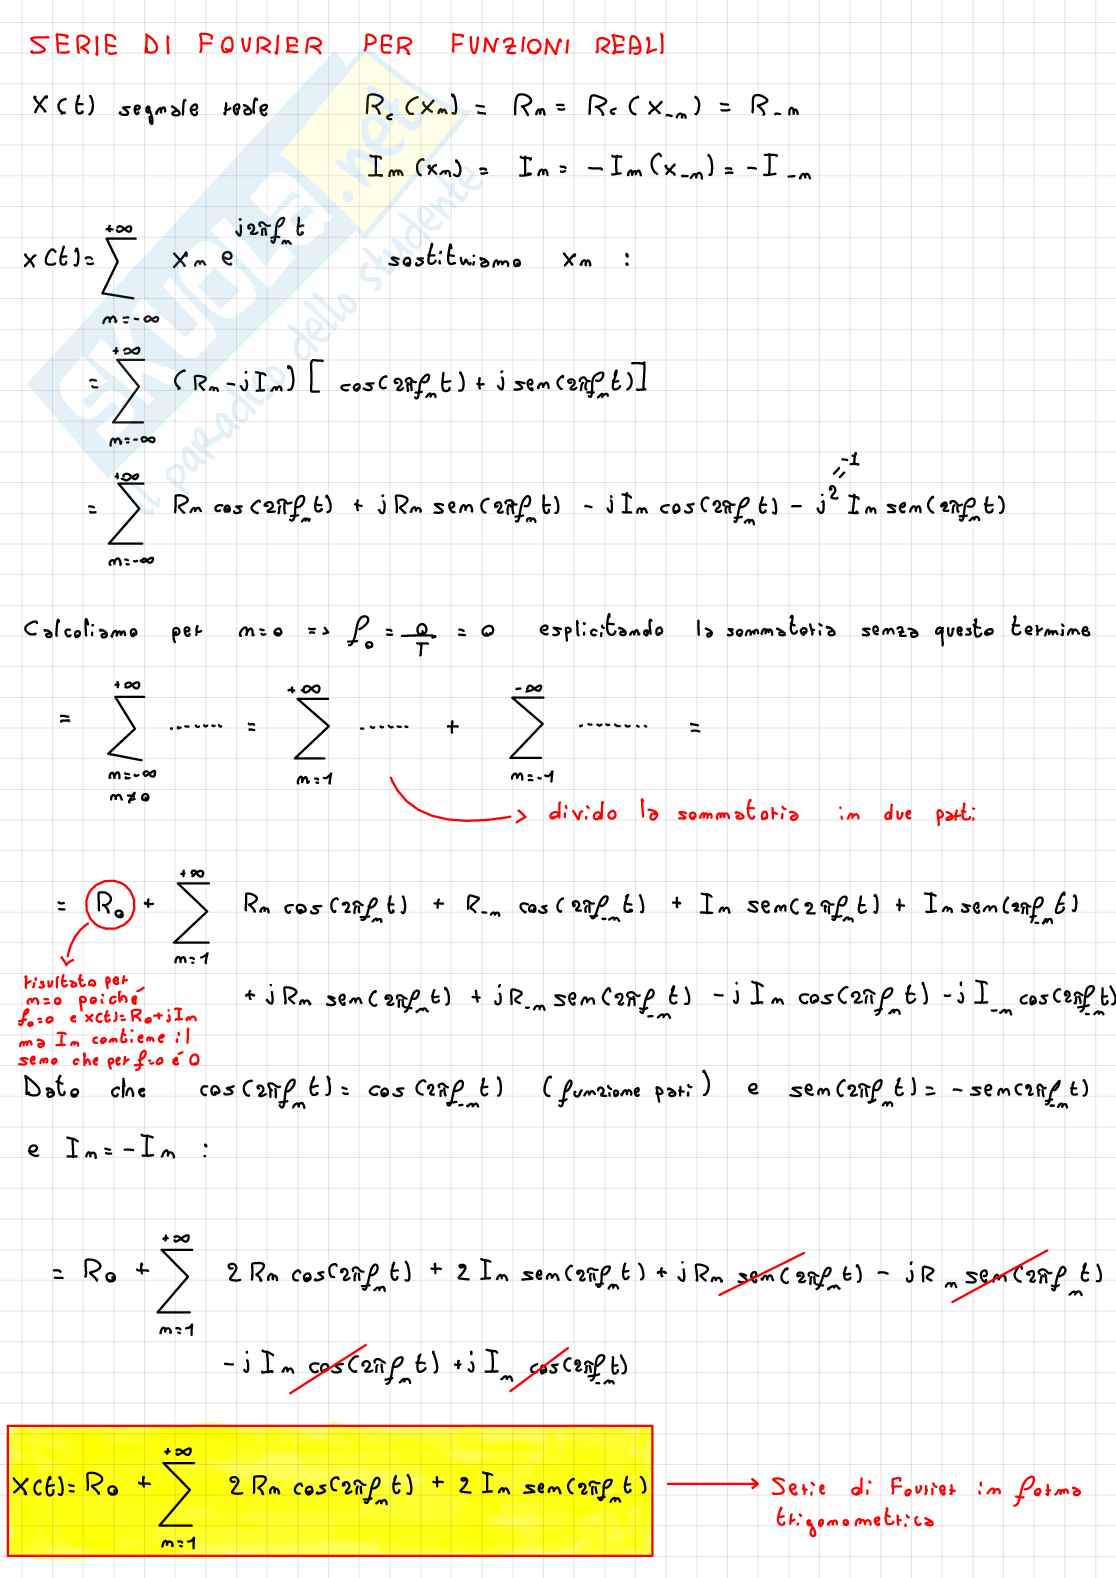 SERIE DI FOURIER PER FUNZIONI REALI
X(t) segnale reale Re(Xn) = Rn = Re(X-n) = R-n
Im(Xn) = In = -Im(X-n) = -I-n
x(t) = +∞ ∑ n=-∞ Xn e^j2πfnt sostituiamo Xn :
= +∞ ∑ n=-∞ (Rn - jIn) [ cos(2πfnt) + j sen(2πfnt)]
= +∞ ∑ n=-∞ Rn cos(2πfnt) + jRn sen(2πfnt) - jIn cos(2πfnt) - j² In sen(2πfnt)
-1
Calcoliamo per n=0 => f0 = 0/T = 0 esplicitando la sommatoria senza questo termine
= +∞ ∑ n=-∞ n≠0 ....... = +∞ ∑ n=1 ...... + -∞ ∑ n=-1 ........ =
divido la sommatoria in due parti
= R0 + +∞ ∑ n=1 Rn cos(2πfnt) + R-n cos(2πf-nt) + In sen(2πfnt) + In sen(2πf-nt)
+ jRn sen(2πfnt) + jR-n sen(2πf-nt) - jIn cos(2πfnt) - jI-n cos(2πf-nt)
risultato per
n=0 poiché
f0=0 e x(t)=R0+jIn
ma In contiene il
seno che per f=0 è 0
Dato che cos(2πfnt) = cos(2πf-nt) (funzione pari) e sen(2πfnt) = -sen(2πf-nt)
e In = -In :
= R0 + +∞ ∑ n=1 2Rn cos(2πfnt) + 2In sen(2πfnt) + jRn sen(2πfnt) - jRn sen(2πfnt)
- jIn cos(2πfnt) + jIn cos(2πf-nt)
x(t) = R0 + +∞ ∑ n=1 2Rn cos(2πfnt) + 2In sen(2πfnt)
Serie di Fourier in forma
trigonometrica
SKUOLA.net
il paradiso dello studente